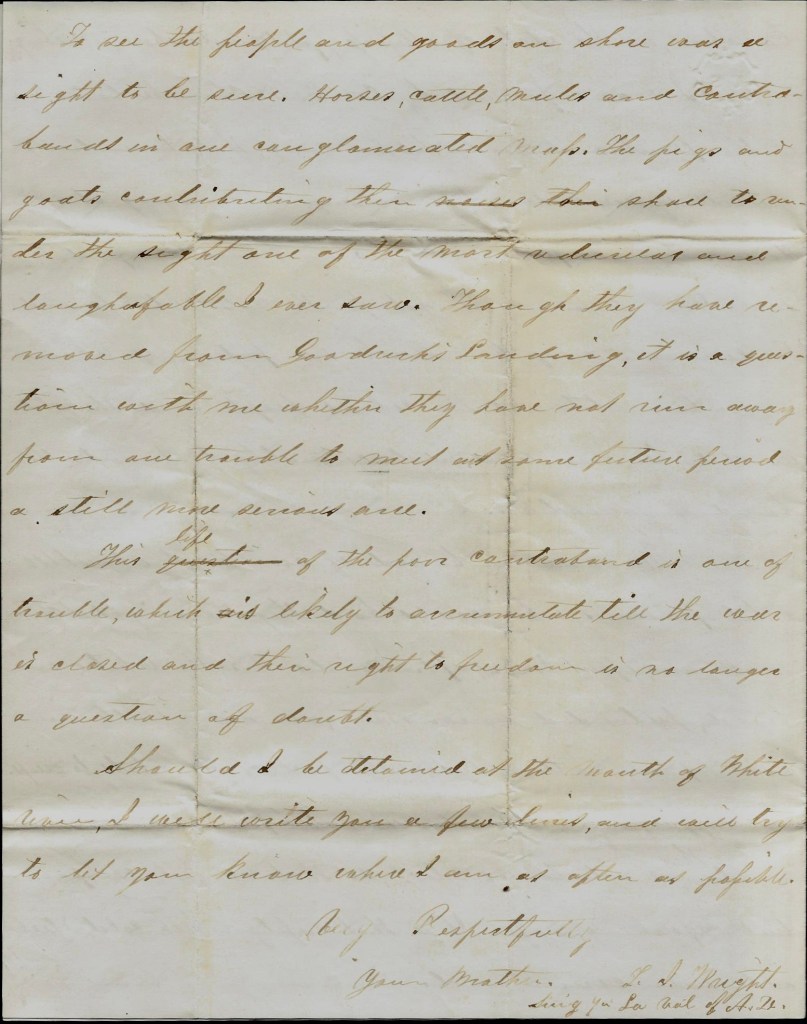 To see the people and goods on shore was a
sight to be sure. Horses, cattle, mules and contra-
bands in one conglomerated mass. The pigs and
goats contributing their noises their share to ren-
der the sight one of the most rediculous and
laughafable I ever saw. Though they have re-
moved from Goodrich's Landing, it is a ques-
tion with me whether they have not run away
from one trouble to meet at some future period
a still more serious one.
life
This question of the poor contraband is one of
trouble, which is likely to accumulate till the war
is closed and their right to freedom is no longer
a question of doubt.
Should I be detained at the mouth of White
river, I will write you a few lines, and will try
to let you know where I am as often as possible.
Very Respectfully
Your Brother. L. J. Wright.
Surg La Vol of A. D.